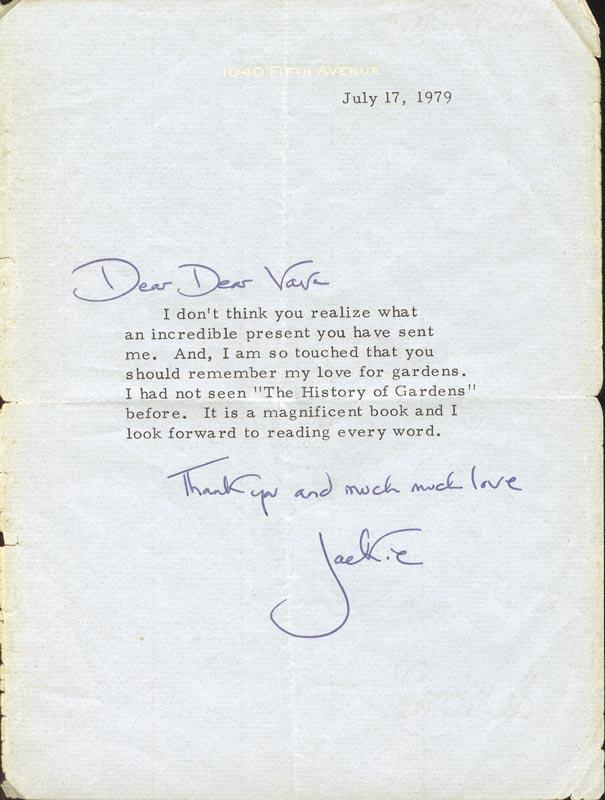 1040 FIFTH AVENUE
July 17, 1979
Dear Dear Vava
I don't think you realize what
an incredible present you have sent
me. And, I am so touched that you
should remember my love for gardens.
I had not seen "The History of Gardens"
before. It is a magnificent book and I
look forward to reading every word.
Thank you and much much love
Jackie